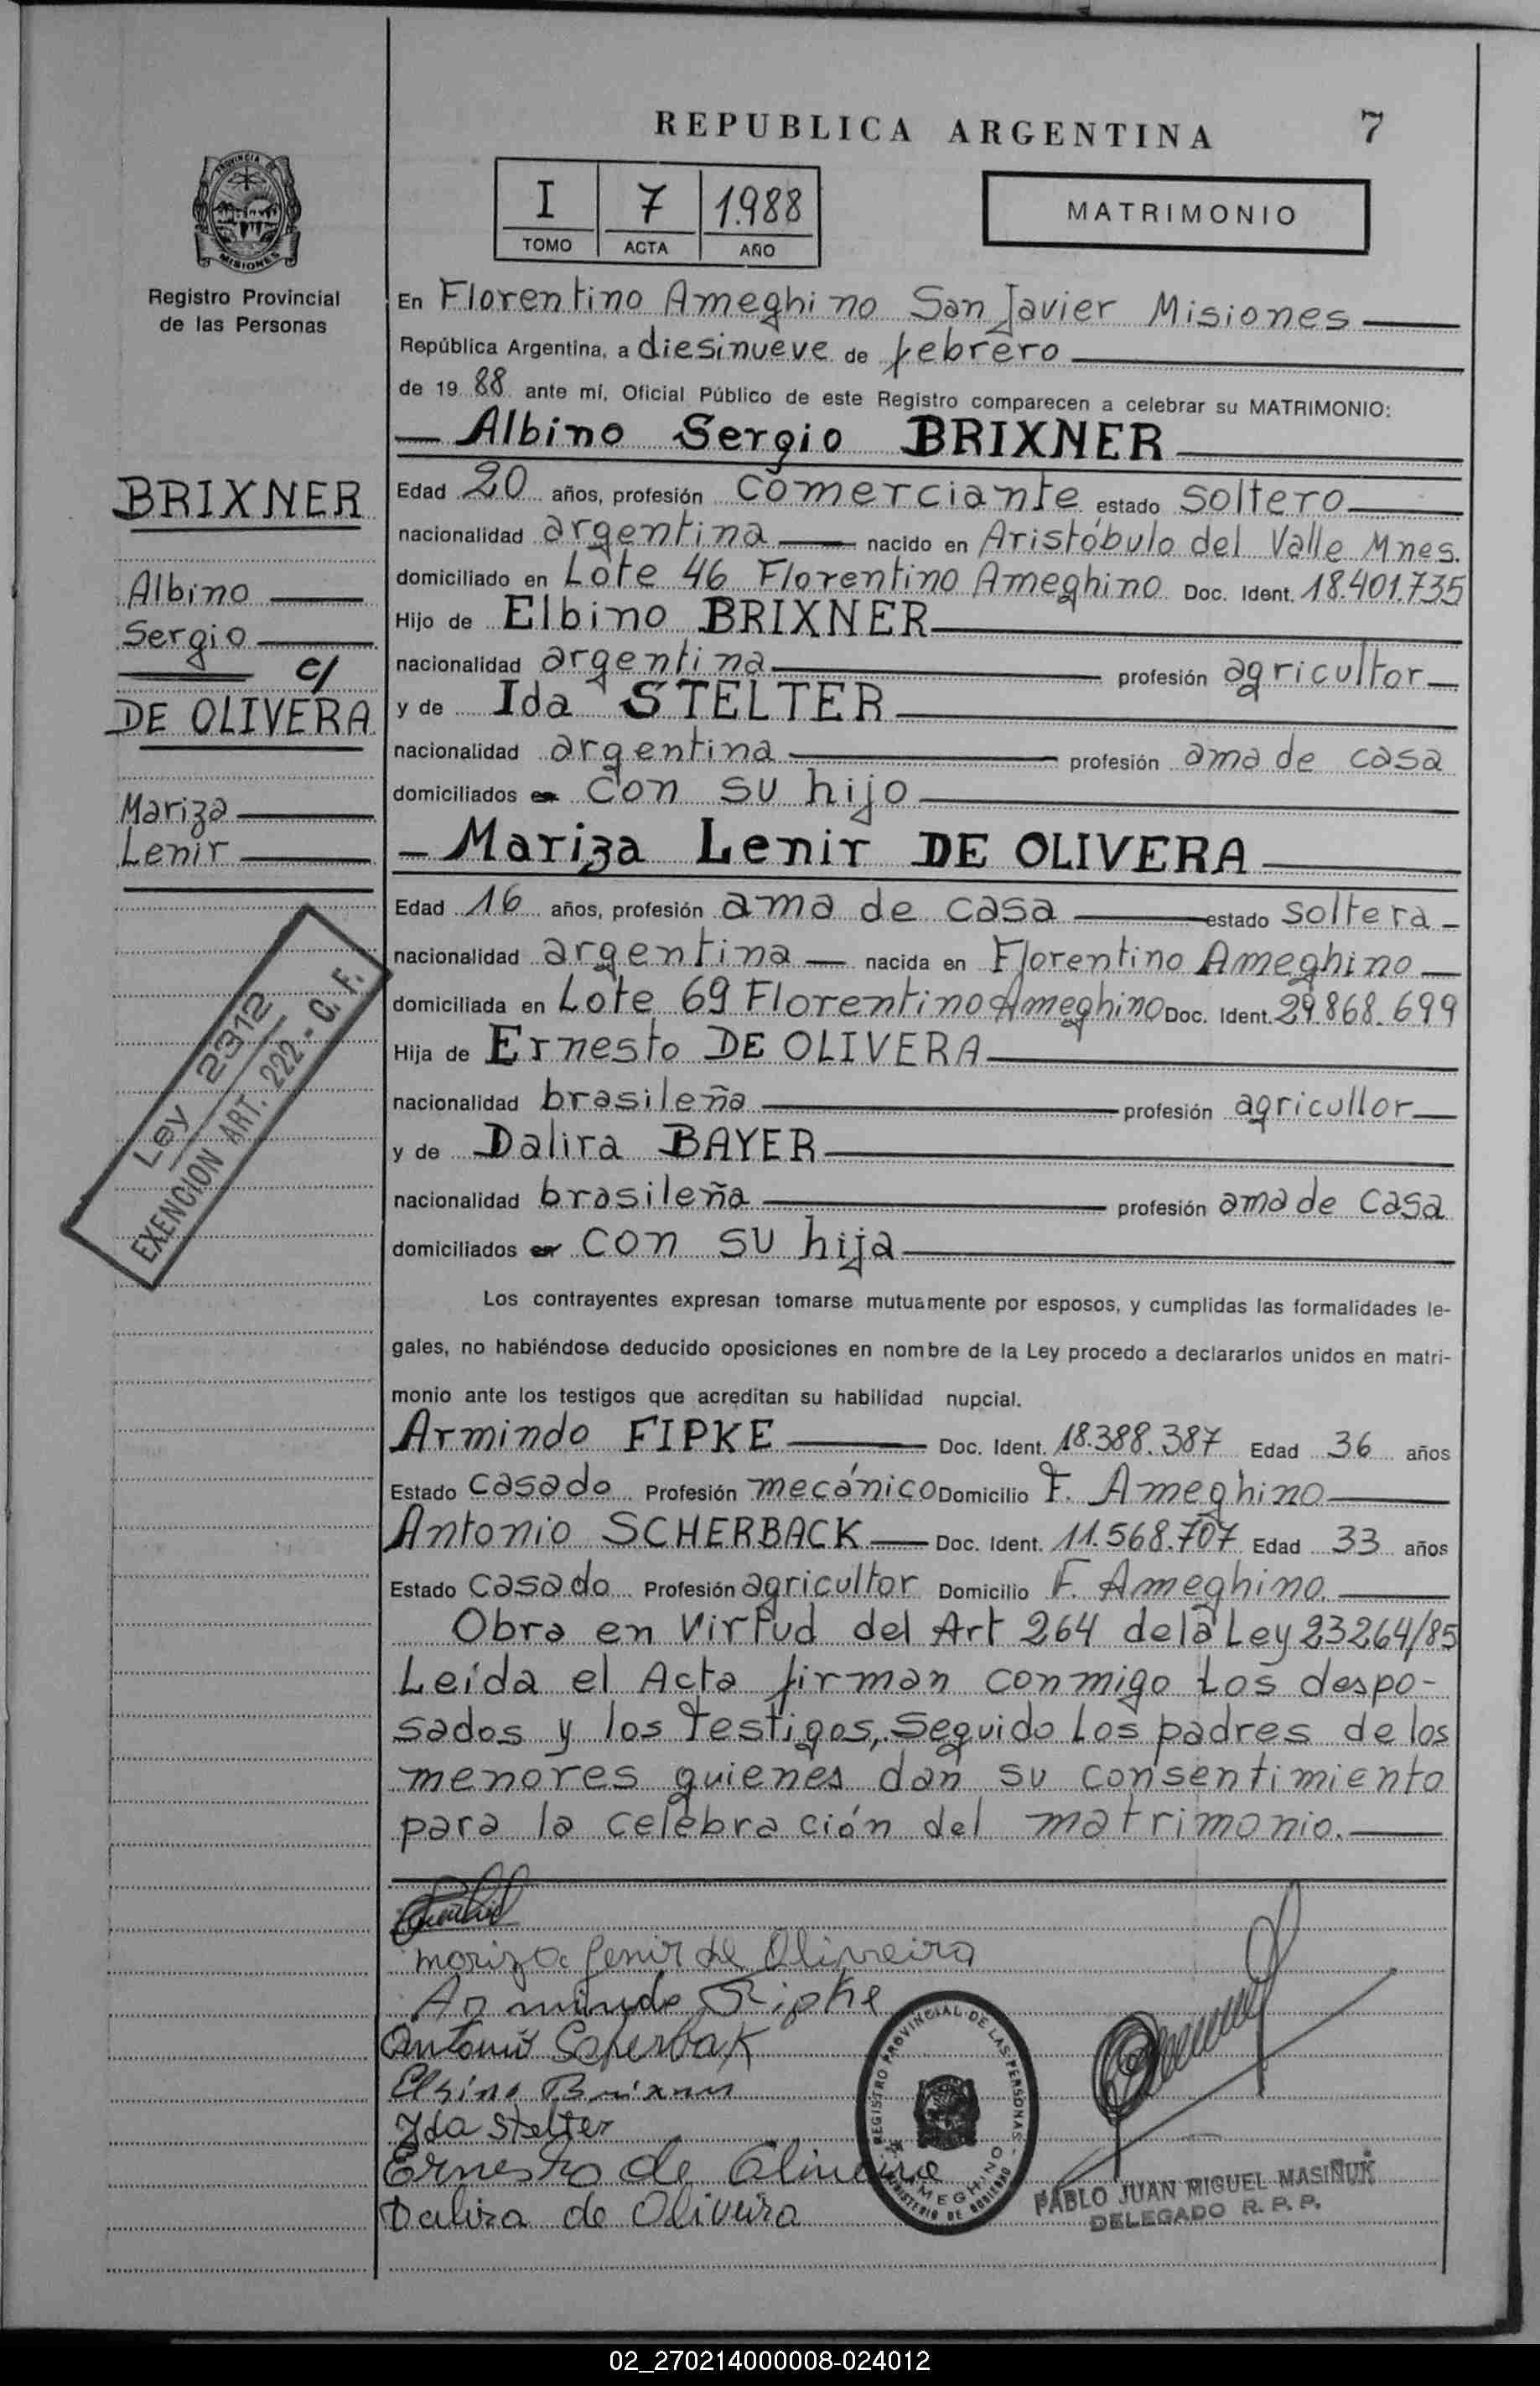 REPUBLICA ARGENTINA
7
I
7
1.988
TOMO
ACTA
AÑO
MATRIMONIO
PROVINCIA DE
MISIONES
Registro Provincial
de las Personas
En Florentino Ameghino San Javier Misiones
República Argentina, a diesinueve de febrero
de 19 88 ante mí, Oficial Público de este Registro comparecen a celebrar su MATRIMONIO:
Albino Sergio BRIXNER
Edad 20 años, profesión comerciante estado soltero
nacionalidad argentina nacido en Aristóbulo del Valle Mnes.
domiciliado en Lote 46 Florentino Ameghino Doc. Ident. 18.401.735
Hijo de Elbino BRIXNER
nacionalidad argentina profesión agricultor
y de Ida STELTER
nacionalidad argentina profesión ama de casa
domiciliados en con su hijo
Mariza Lenir DE OLIVERA
Edad 16 años, profesión ama de casa estado soltera
nacionalidad argentina nacida en Florentino Ameghino
domiciliada en Lote 69 Florentino Ameghino Doc. Ident. 29.868.699
Hija de Ernesto DE OLIVERA
nacionalidad brasileña profesión agricultor
y de Dalira BAYER
nacionalidad brasileña profesión ama de casa
domiciliados en con su hija
BRIXNER
Albino
Sergio
c/
DE OLIVERA
Mariza
Lenir
Ley 2312
EXENCION ART. 222 - C. F.
Los contrayentes expresan tomarse mutuamente por esposos, y cumplidas las formalidades le-
gales, no habiéndose deducido oposiciones en nombre de la Ley procedo a declararlos unidos en matri-
monio ante los testigos que acreditan su habilidad nupcial.
Armindo FIPKE Doc. Ident. 18.388.387 Edad 36 años
Estado casado Profesión mecánico Domicilio F. Ameghino
Antonio SCHERBACK Doc. Ident. 11.568.707 Edad 33 años
Estado casado Profesión agricultor Domicilio F. Ameghino.
Obra en Virtud del Art 264 de la Ley 23264/85
Leída el Acta firman conmigo Los despo-
sados y los testigos, seguido Los padres de los
menores quienes dan su consentimiento
para la celebración del matrimonio.
mariza Lenir de Oliveira
Armindo Fipke
Antonio Scherbak
Elbino Brixner
Ida Stelter
Ernesto de Oliveira
Dalira de Oliveira
REGISTRO PROVINCIAL DE LAS PERSONAS
AMEGHINO
MINISTERIO DE GOBIERNO
PABLO JUAN MIGUEL MASIÑUK
DELEGADO R. P. P.
02_270214000008-024012